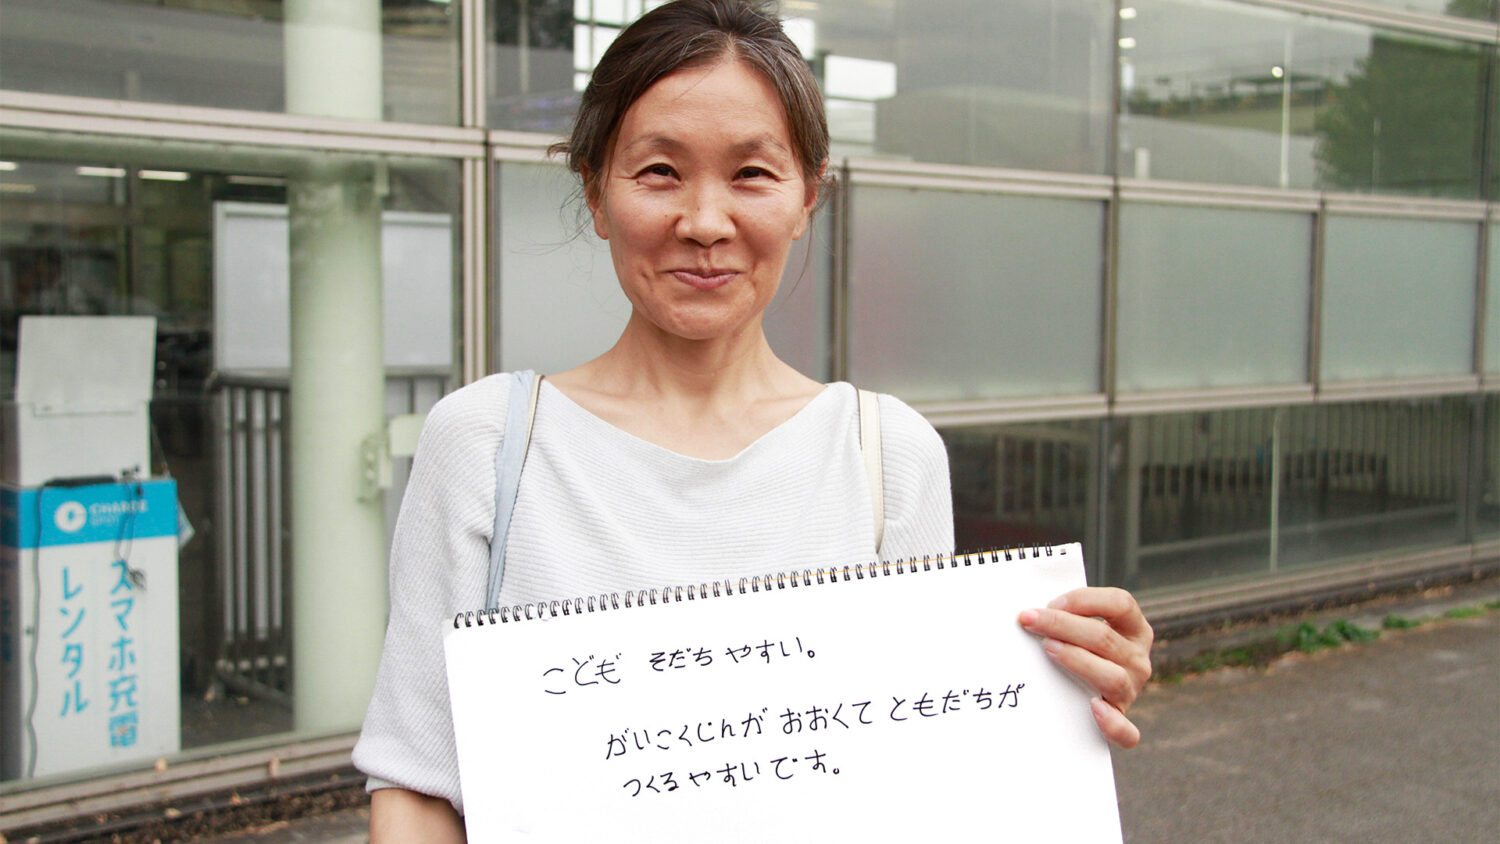 こども そだち やすい。
がいこくじんが おおくて ともだちが
つくるやすいです。
CHARGE
SPOT
スマホ充電
レンタル